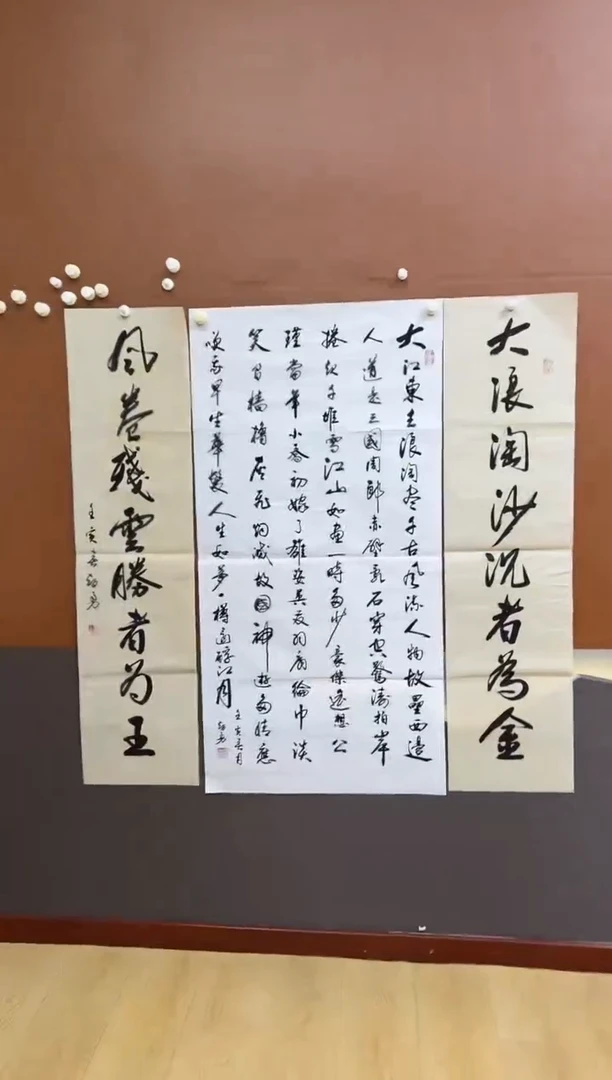 大浪淘沙沉者為金
大江東去浪淘盡千古風流人物故壘西邊
人道是三國周郎赤壁亂石穿空驚濤拍岸
捲起千堆雪江山如畫一時多少豪傑遙想公
瑾當年小喬初嫁了雄姿英發羽扇綸巾談
笑間檣櫓灰飛烟滅故國神遊多情應
咲我早生華髮人生如夢一樽還酹江月
壬寅春月
風卷殘雲勝者为王
壬寅春